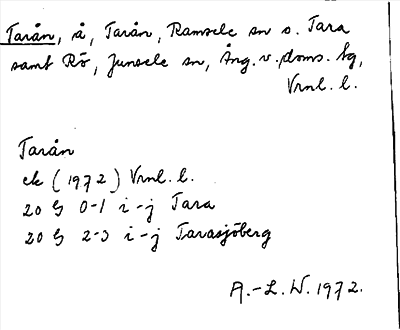 Tarån, å, Tarån, Ramsele sn o. Tara
samt Rö, Junsele sn, Ång. v. doms. tg,
Vrnl. l.
Tarån
ek (1972) Vrnl. l.
20 G 0-1 i-j Tara
20 G 2-3 i-j Tarasjöberg
A.-L. W. 1972.